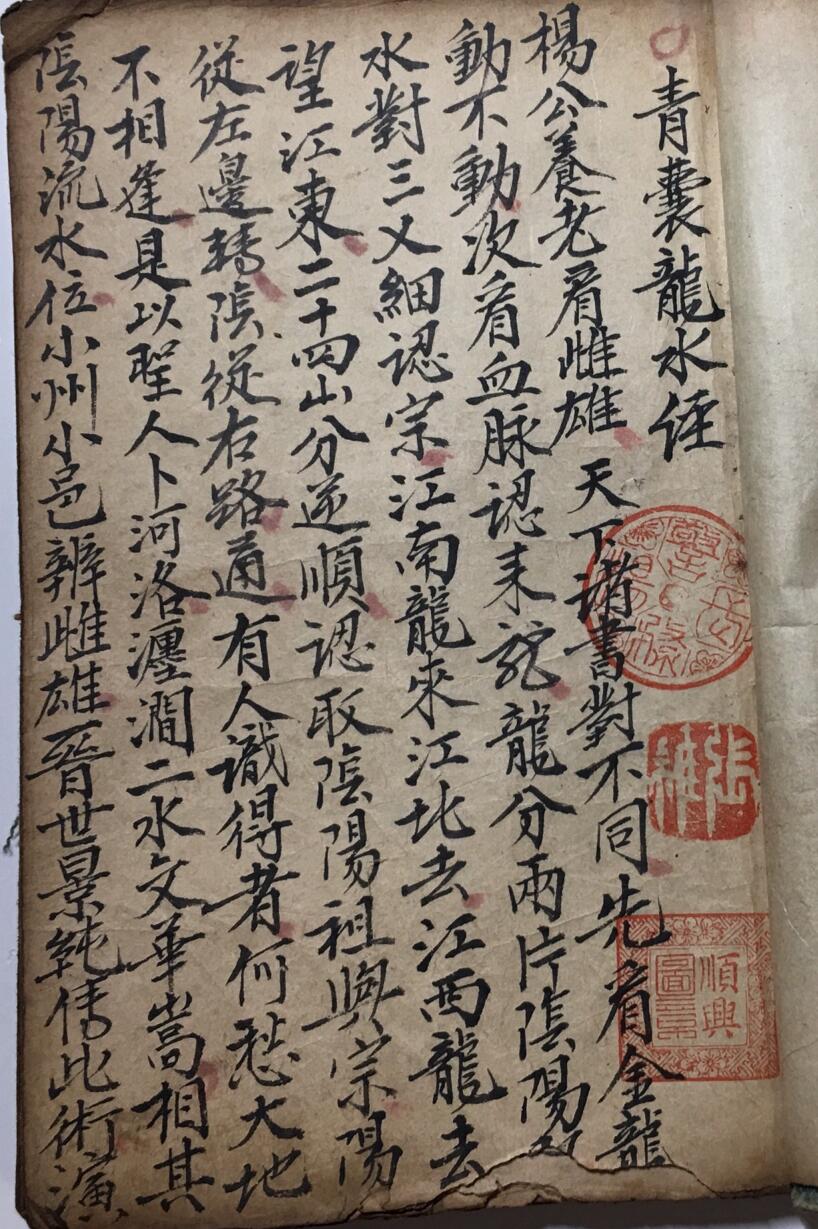 青囊龍水經
楊公養老看雌雄天下諸書對不同先看金龍
動不動次看血脉認来龍龍分兩片陰陽
水對三义細認宗江南龍來江北去江西龍去
望江東二十四山分逆順認取陰陽祖與宗陽
從左邊轉陰從右路通有人識得者何愁大地
不相逢是以聖人卜河洛瀍澗二水文華嵩相其
陰陽流水位小州小邑辨雌雄晉世景純傳此術演
順興
圖章